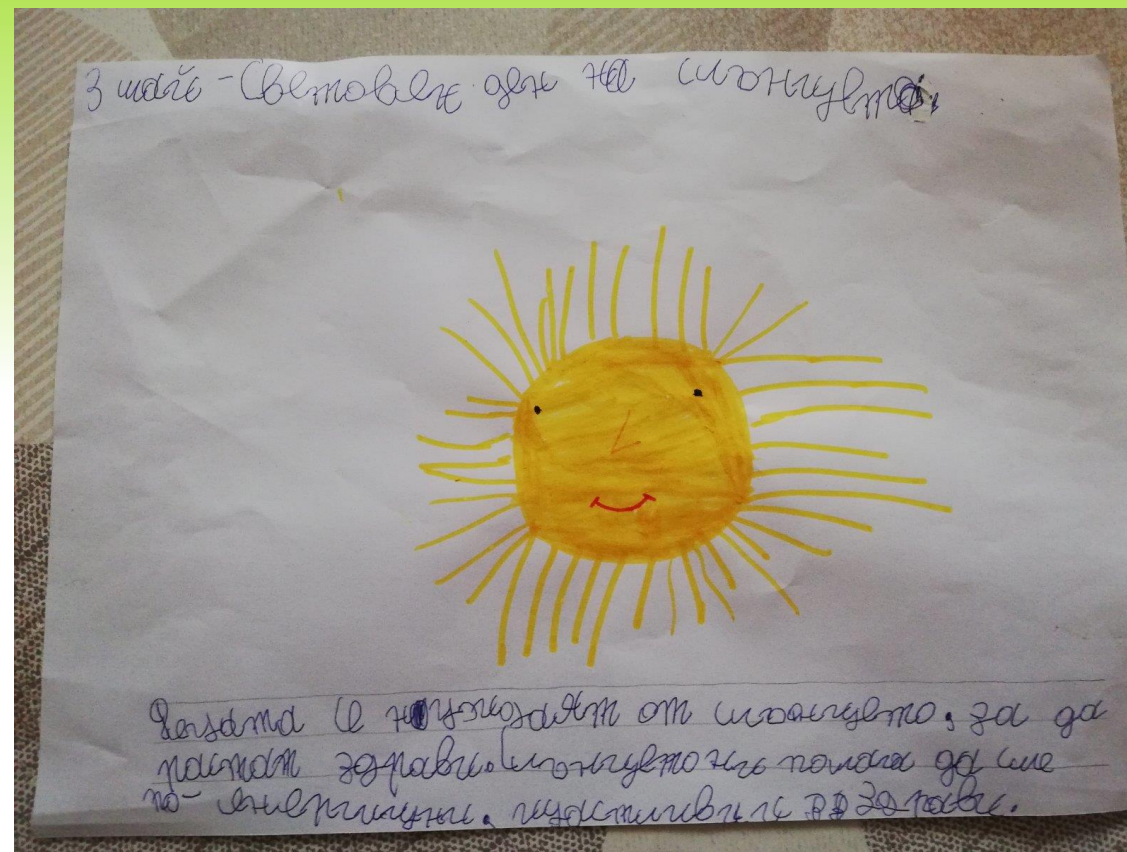 3 май - Световен ден на слънцето.
Децата се нуждаят от слънцето, за да
растат здрави. Слънцето ни помага да сме
по-енергични, щастливи и здрави.